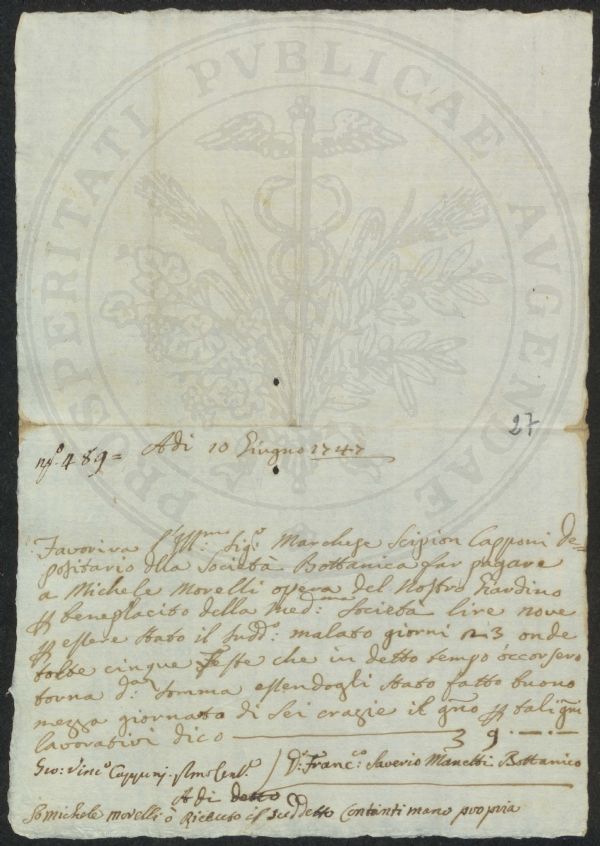 PROSPERITATI PVBLICAE AVGENDAE
27
nº. 489 = Adi 10 Giugno 1747
Favorirà l'Ill.mo Sig.e Marchese Scipion Capponi De=
positario della Società Bottanica far pagare
a Michele Morelli opera del Nostro Giardino
beneplacito della med.ma Società lire nove
essere stato il sudd.o: malato giorni 23 onde
tolte cinque feste che in detto tempo occorsero
torna d.a somma essendogli stato fatto buono
mezza giornata di sei crazie il g.no tali g.ni
lavorativi dico 9.—.—
Gio: Vinc.o Capponj D.r Franc.o Saverio Manetti Bottanico
Adi detto
Io Michele morelli ò Riceuto il Sud.detto Contanti mano propria